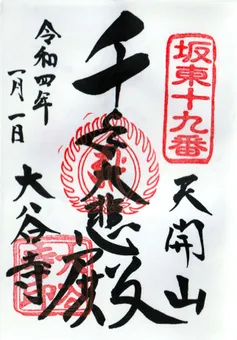 坂東十九番
天開山
千手大悲殿
令和四年
一月一日
大谷寺